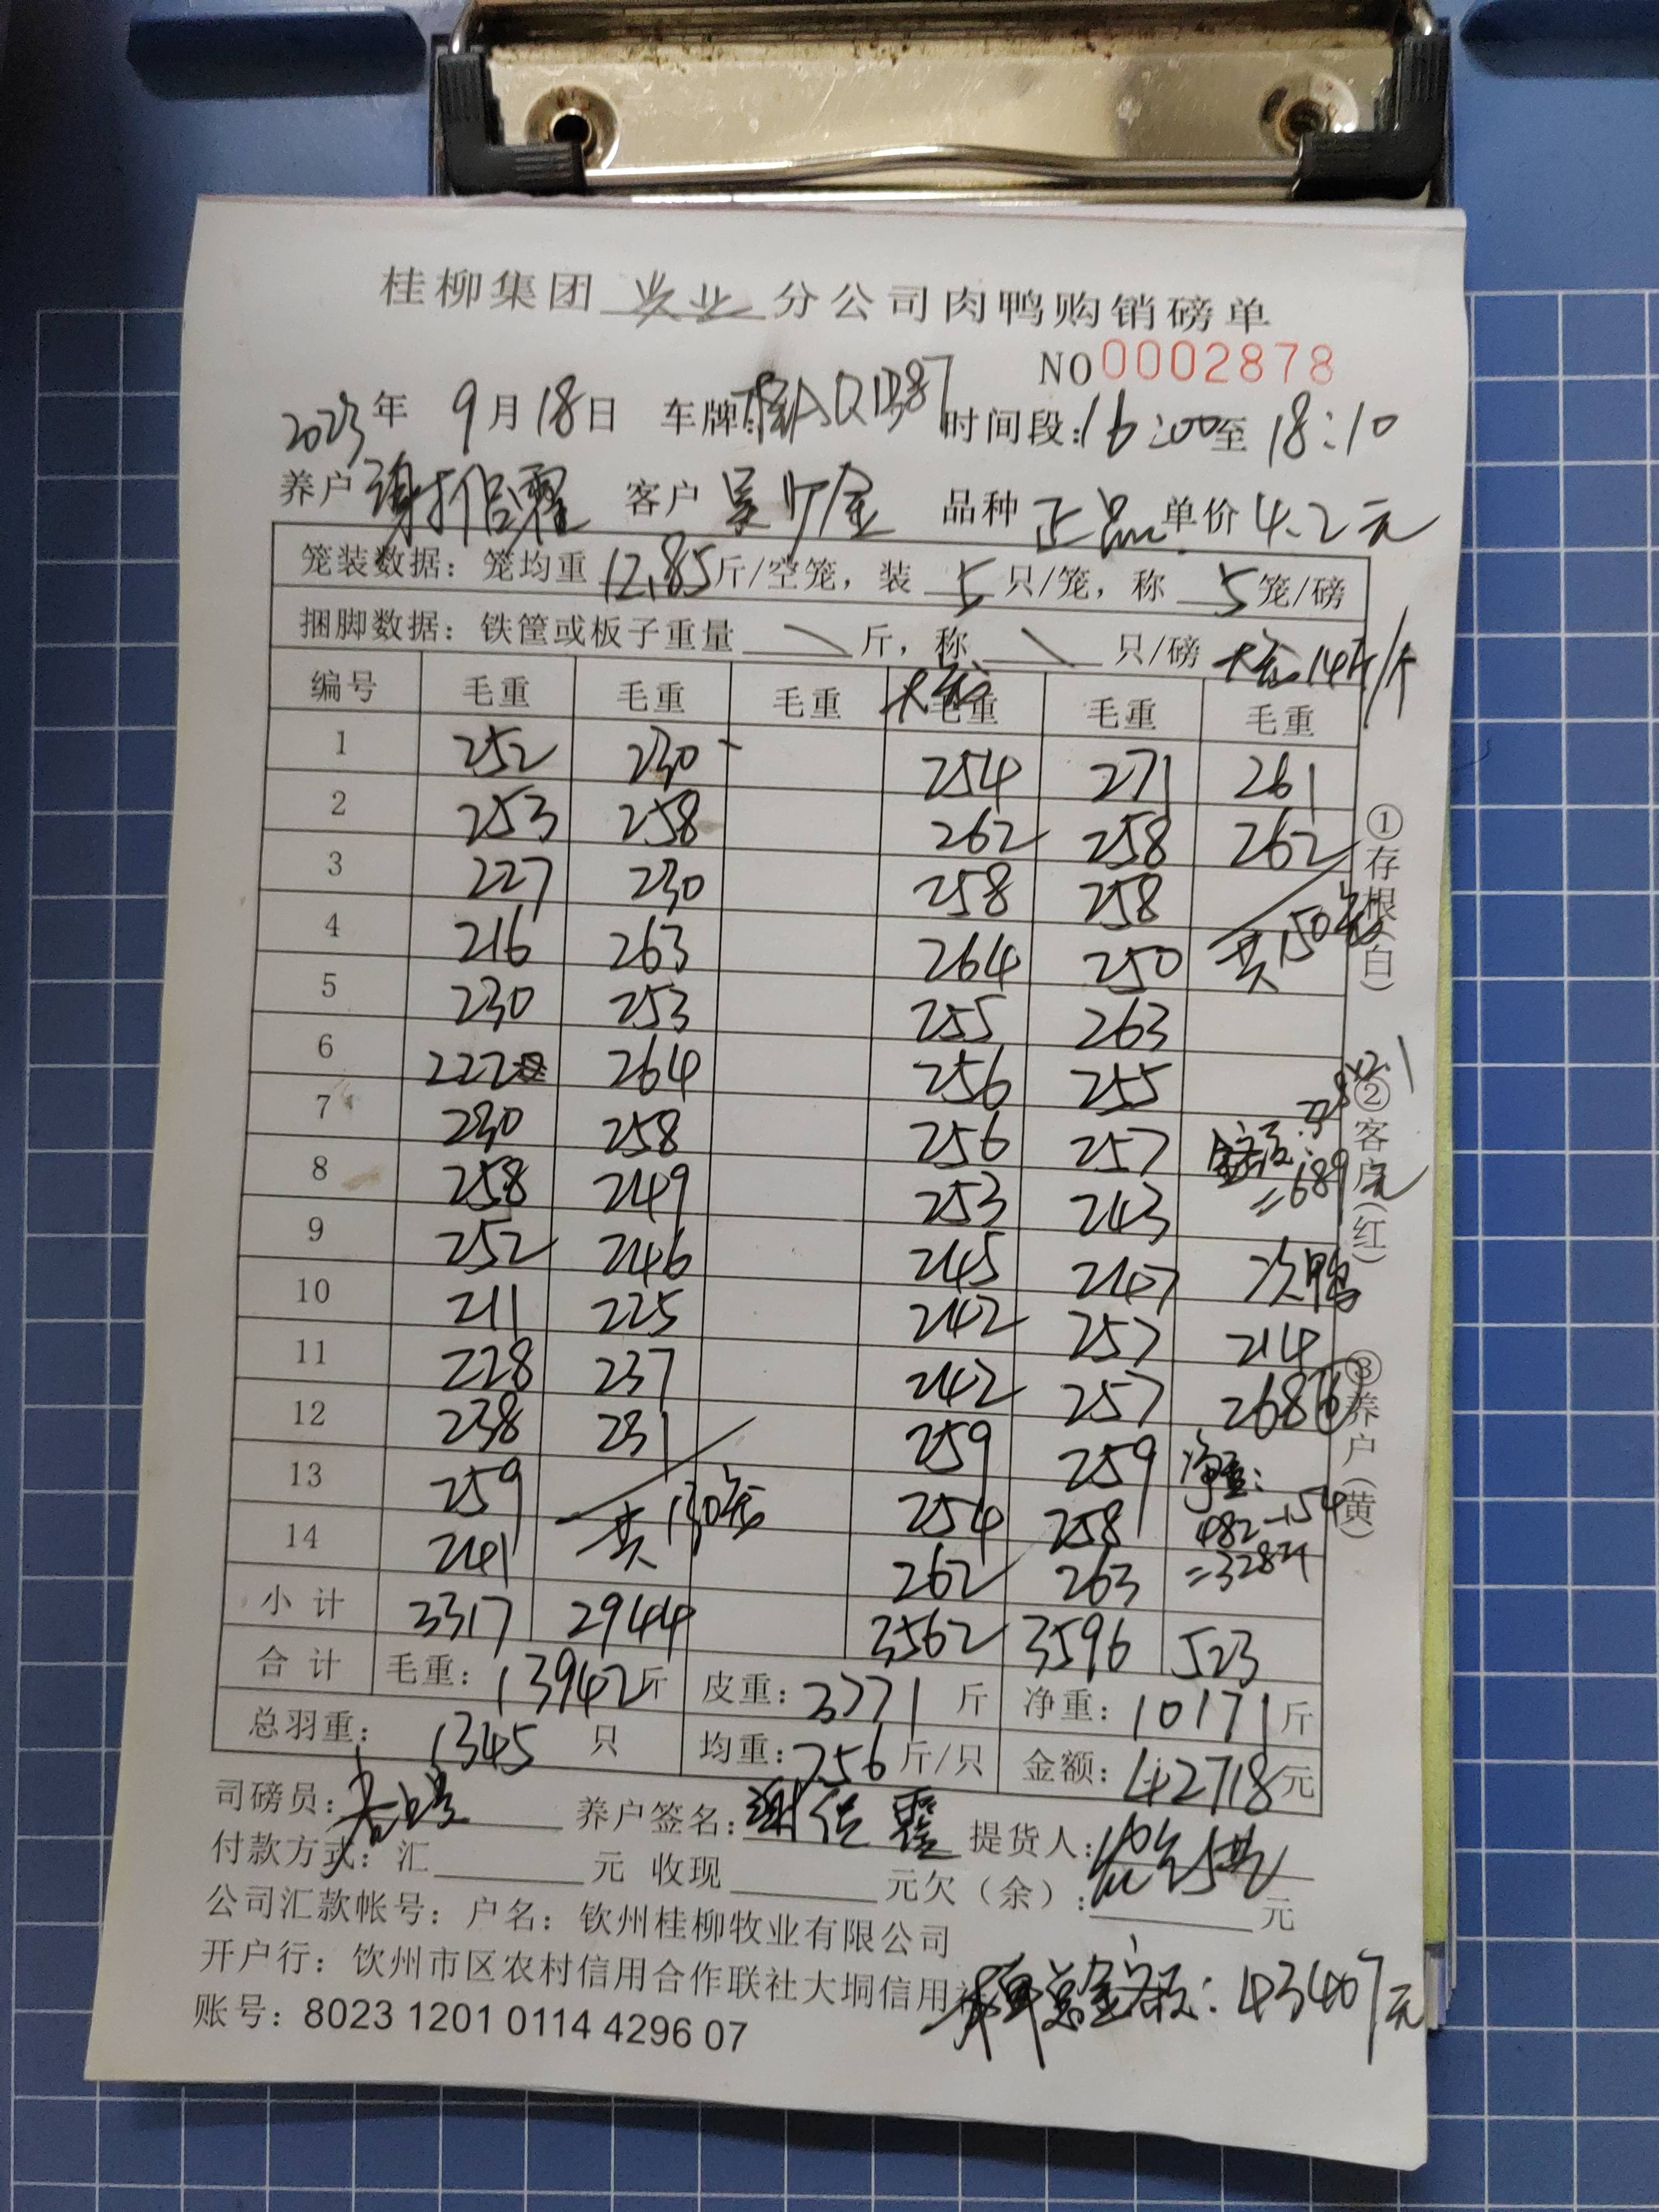 桂柳集团 兴业 分公司肉鸭购销磅单
NO 0002878
2023年 9月18日 车牌:桂AQ1B87 时间段:16:00至18:10
养户 谢信霍 客户 吴 金 品种 正品 单价 4.2元
笼装数据：笼均重 12.85 斤/空笼，装 5 只/笼，称 5 笼/磅
捆脚数据：铁筐或板子重量 \ 斤，称 \ 只/磅 大笼14斤/个
编号 毛重 毛重 毛重 大笼 毛重 毛重 毛重
1 252 230 254 271 261
2 253 258 262 258 262
3 227 230 258 258
4 216 263 264 250 共150笼
5 230 253 255 263
6 222 264 256 255
7 230 258 256 257 金额:328×2.1
8 258 249 253 243 =689元
9 252 246 245 247 次鸭
10 211 225 242 257 214
11 228 237 242 257 268 ⑥
12 238 231 259 259 净重:
13 259 共130笼 254 258 482-154
14 241 262 263 =328斤
小计 3317 2944 3562 3596 523
合计 毛重：13942斤 皮重：3771 斤 净重：10171斤
总羽重： 1345 只 均重：756斤/只 金额：42718元
司磅员： 养户签名：谢信霍 提货人：
付款方式：汇 元 收现 元欠（余）： 元
公司汇款帐号：户名：钦州桂柳牧业有限公司
开户行：钦州市区农村信用合作联社大垌信用社
账号：8023 1201 0114 4296 07
本单总金额：43407元
①存根（白） ②客户（红） ③养户（黄）